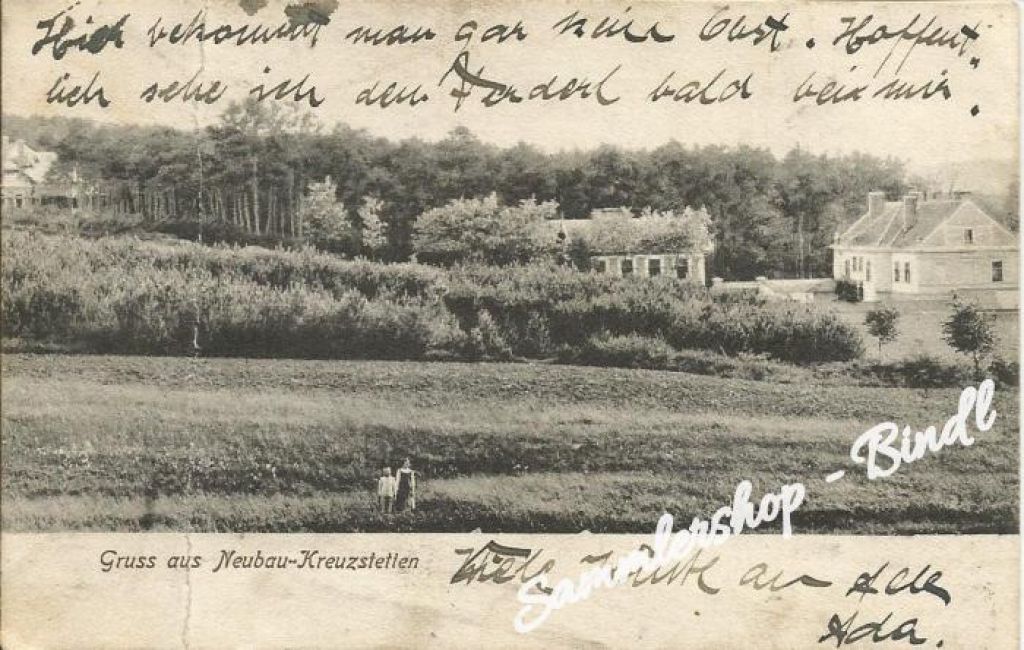 Hier bekommt man gar kein Obst. Hoffent-
lich sehe ich den Ferderl bald bei mir.
Sammlershop - Bindl
Gruss aus Neubau-Kreuzstetten
Viele Küsse an
Ada.